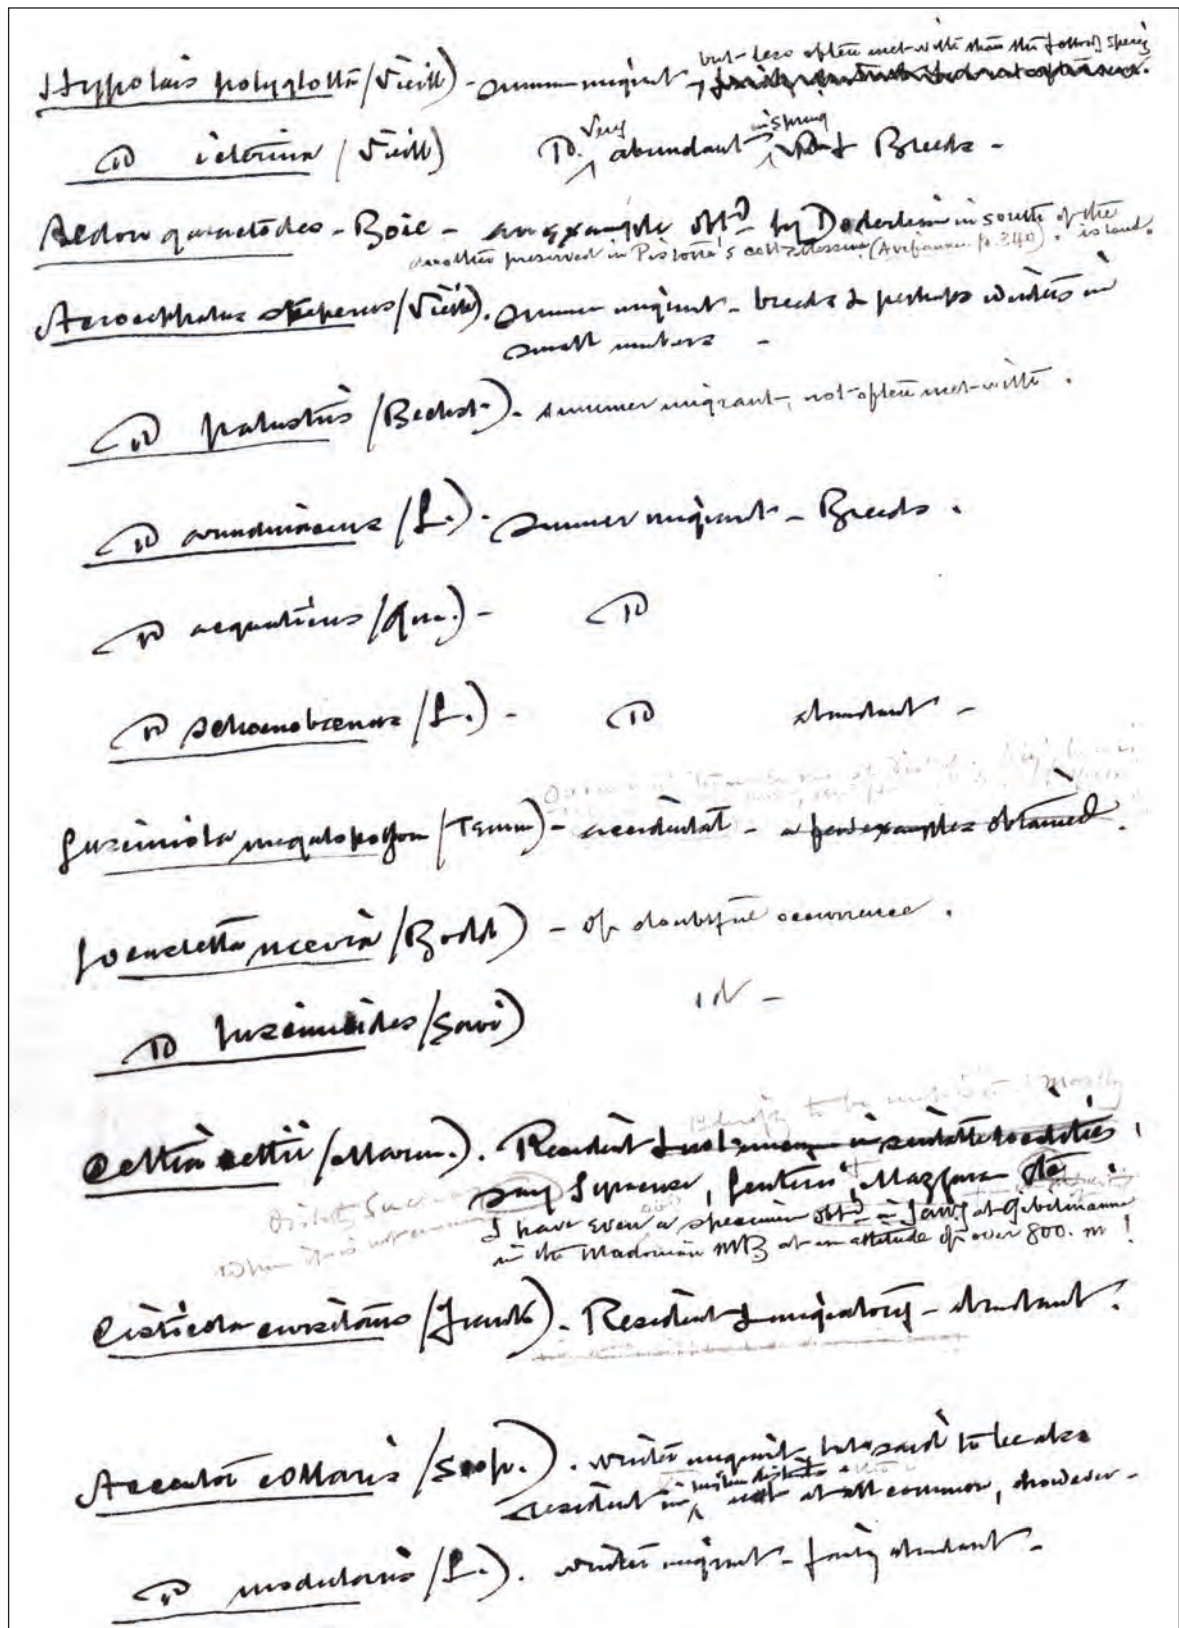 but less often met with than the follow.g species
Hypolais polyglotta (Vieill) - summer migrant,
Very in spring
ID icterina (Vieill) ID. abundant & Breeds -
Aedon galactodes - Boie - an example obt.d by Doderlein in south of the
another preserved in Pistone's coll. Messina (Avifauna. p. 340). island.
Acrocephalus streperus (Vieill). Summer migrant - breeds & perhaps winters in
small numbers -
ID palustris (Bechst.). summer migrant, not often met with.
ID arundinaceus (L.). Summer migrant - Breeds.
ID aquaticus (Gm.) - ID
ID schoenobaenus (L.) - ID abundant -
Lusciniola megalopogon (Temm) - accidental - a few examples obtained.
Locustella naevia (Bodd) - of doubtful occurrence.
ID luscinioides (Savi) id -
to be
Cettia cettii (Marm.). Resident & not in suitable localities,
say Syracuse, Lentini, Mazzara etc
I have even a specimen obt.d in Jan.y at Gibilmanna
in the Madonian Mts at an altitude of over 800. m!
Cisticola cursitans (Frankl). Resident & migratory - abundant.
Accentor collaris (Scop.). winter migrant, but said to be also
resident in districts not at all common, however -
ID modularis (L.). winter migrant - fairly abundant -